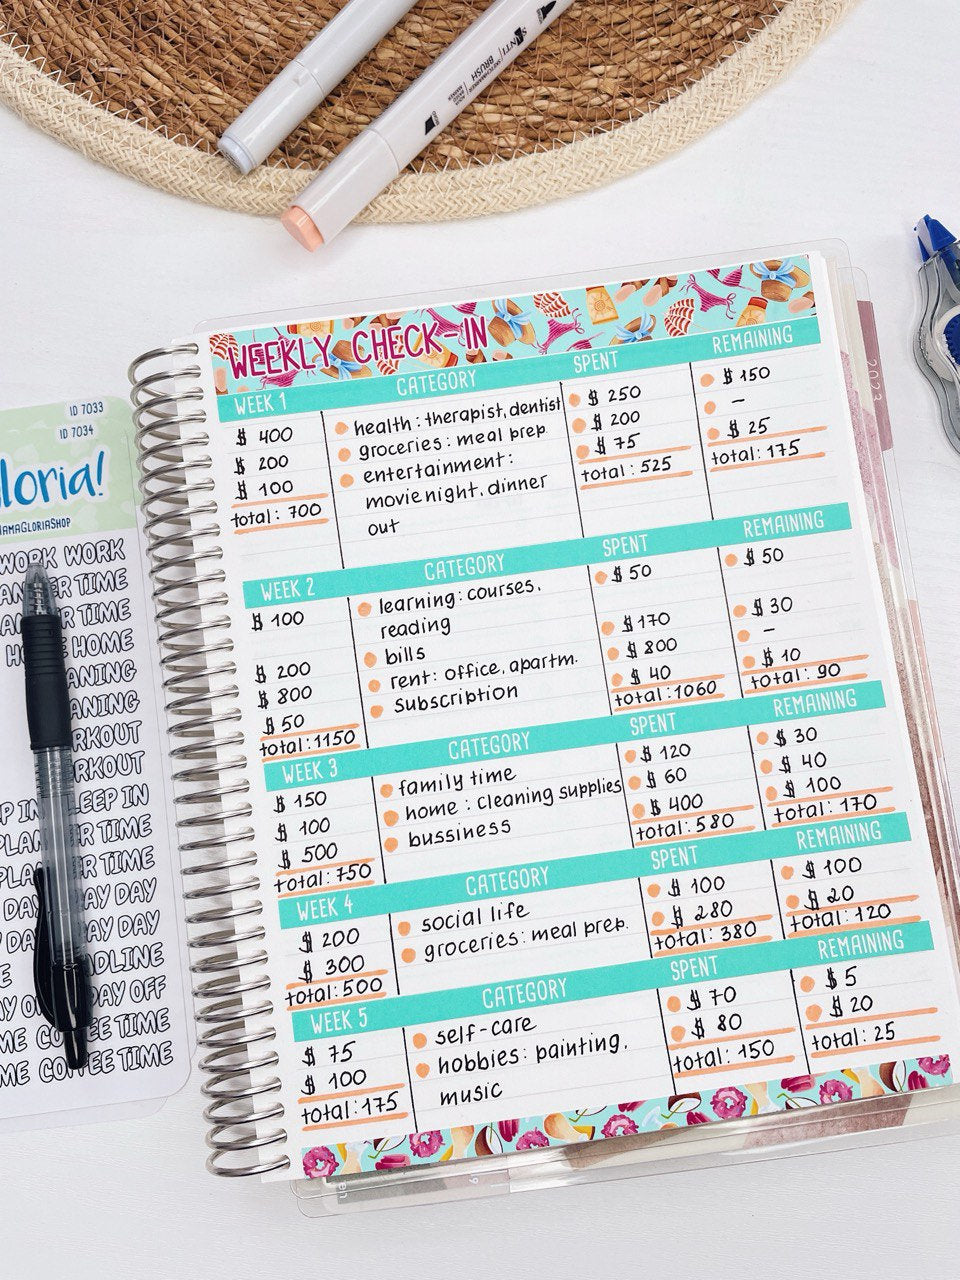 SANTI
SKETCHMARKER
BRUSH
WEEKLY CHECK-IN
WEEK 1 CATEGORY SPENT REMAINING
$ 400 health: therapist, dentist $ 250 $ 150
$ 200 groceries: meal prep. $ 200 –
$ 100 entertainment: $ 75 $ 25
total: 700 movie night, dinner total: 525 total: 175
out
WEEK 2 CATEGORY SPENT REMAINING
$ 100 learning: courses, $ 50 $ 50
reading
$ 200 bills $ 170 $ 30
$ 800 rent: office, apartm. $ 800 –
$ 50 subscription $ 40 $ 10
total: 1150 total: 1060 total: 90
WEEK 3 CATEGORY SPENT REMAINING
$ 150 family time $ 120 $ 30
$ 100 home: cleaning supplies $ 60 $ 40
$ 500 bussiness $ 400 $ 100
total: 750 total: 580 total: 170
WEEK 4 CATEGORY SPENT REMAINING
$ 200 social life $ 100 $ 100
$ 300 groceries: meal prep. $ 280 $ 20
total: 500 total: 380 total: 120
WEEK 5 CATEGORY SPENT REMAINING
$ 75 self-care $ 70 $ 5
$ 100 hobbies: painting, $ 80 $ 20
total: 175 music total: 150 total: 25
2023
ID 7033
ID 7034
loria!
MAMAGLORIASHOP
WORK WORK
ER TIME
ER TIME
HOME
EANING
ANING
RKOUT
RKOUT
P IN SLEEP IN
PLAN ER TIME
PLA ER TIME
DAY AY DAY
DAY AY DAY
E ADLINE
AY O DAY OFF
ME CO EE TIME
ME COFFEE TIME